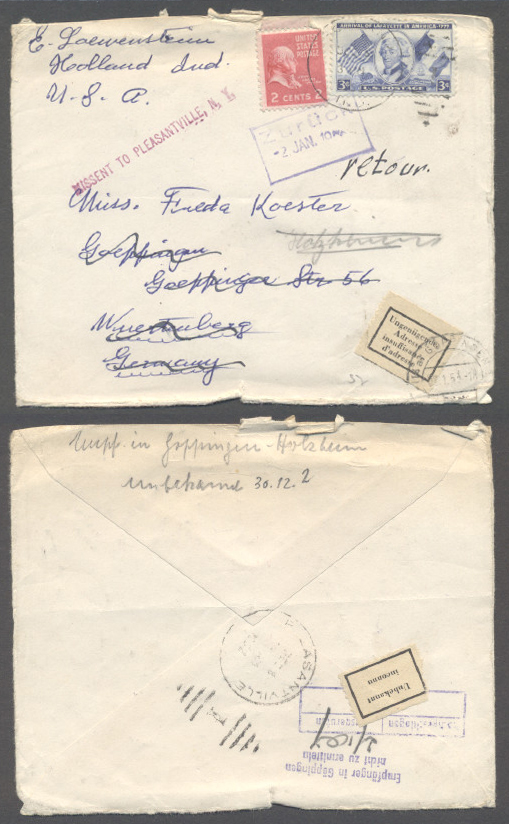 E. Loewenstein
Holland Ind.
U. S. A.
UNITED STATES POSTAGE
2 CENTS 2
ARRIVAL OF LAFAYETTE IN AMERICA-1777
3¢ U.S. POSTAGE 3¢
MISSENT TO PLEASANTVILLE, N. Y.
Zurück
-2. JAN. 195
retour.
Miss. Freda Koester
Holzheim
Goeppingen
Goeppinger Str 56
Wuertemberg
Germany
Ungenügende
Adresse
insuffisance
d'adresse
37
Empf. in Göppingen-Holzheim
unbekannt 30.12.2
PLEASANTVILLE
Unbekannt
inconnu
Empfänger in Göppingen
nicht zu ermitteln